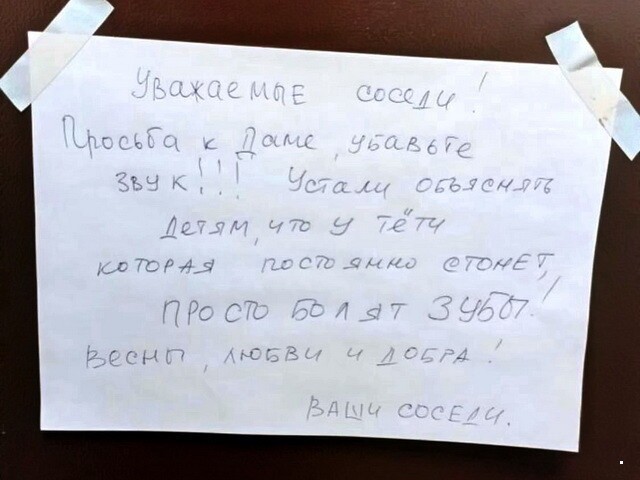 Уважаемые соседи!
Просьба к Даме, убавьте
звук!!! Устали объяснять
детям, что у тёти
которая постоянно стонет,
просто болят зубы!!
Весны, любви и добра!
Ваши соседи.